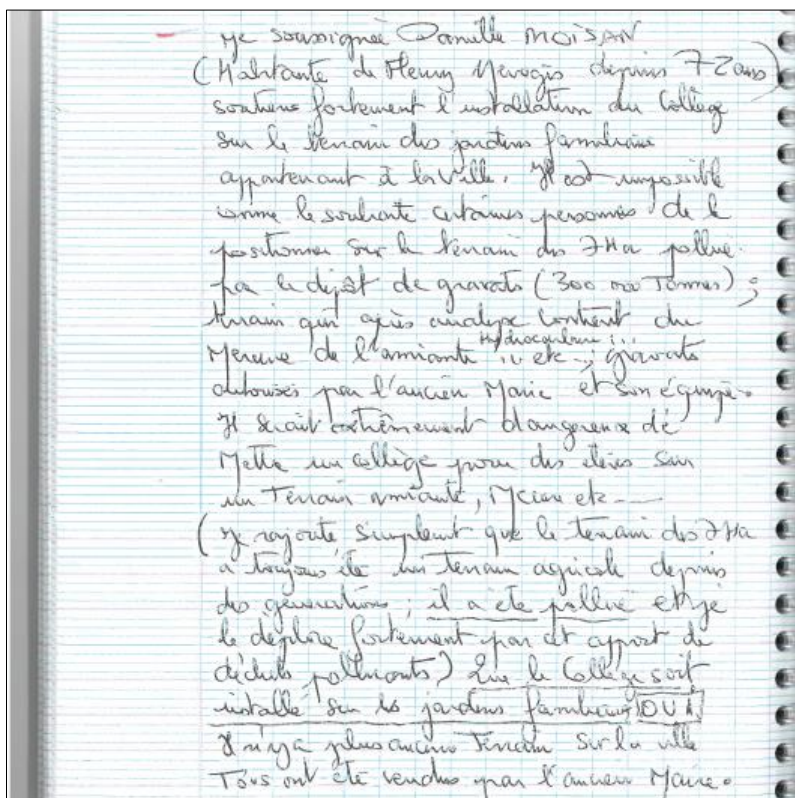 Je soussignée Danielle MOISAN
(Habitante de Fleury Merogis depuis 72 ans)
soutiens fortement l'installation du Collège
sur le terrain des jardins familiaux
appartenant à la Ville. Il est impossible
comme le souhaite certaines personnes de le
positionner sur le terrain des 7Ha pollué
par le dépôt de gravats (300 000 Tonnes) ;
terrain qui après analyse contient du
Hydrocarbure ...
Mercure de l'amiante etc ; gravats
autorisés par l'ancien Maire et son équipe.
Il serait extrêmement dangereux de
Mettre un collège pour des élèves sur
un Terrain amianté, etc ---
(Je rajoute simplement que le terrain des 7Ha
a toujours été un terrain agricole depuis
des générations ; il a été pollué et je
le déplore fortement par cet apport de
déchets polluants) Que le Collège soit
installé sur les jardins familiaux OUI
Il n'y a plus aucun Terrain sur la ville
Tous ont été vendus par l'ancien Maire.